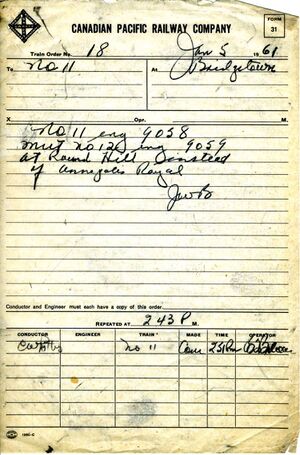 CANADIAN PACIFIC RAILWAY COMPANY
FORM 31
Train Order No. 18 Jan 5 1961
To No 11 At Bridgetown
X Opr. M.
No 11 eng 9058
meet no 12 eng 9059
at Round Hill Instead
of Annapolis Royal
JWB
Conductor and Engineer must each have a copy of this order.
REPEATED AT 243 P M.
CONDUCTOR ENGINEER TRAIN MADE TIME OPERATOR
No 11 Com